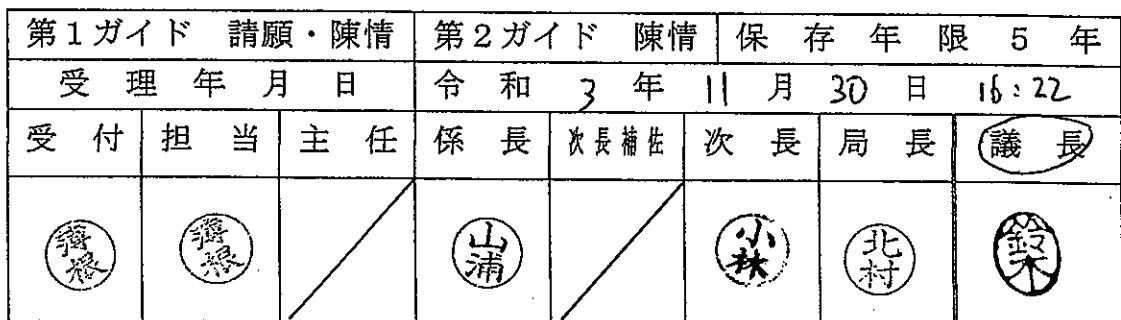 第1ガイド 請願・陳情 第2ガイド 陳情 保存年限5年
受理年月日 令和3年11月30日 16:22
受付 担当 主任 係長 次長補佐 次長 局長 議長
山浦 小林 北村